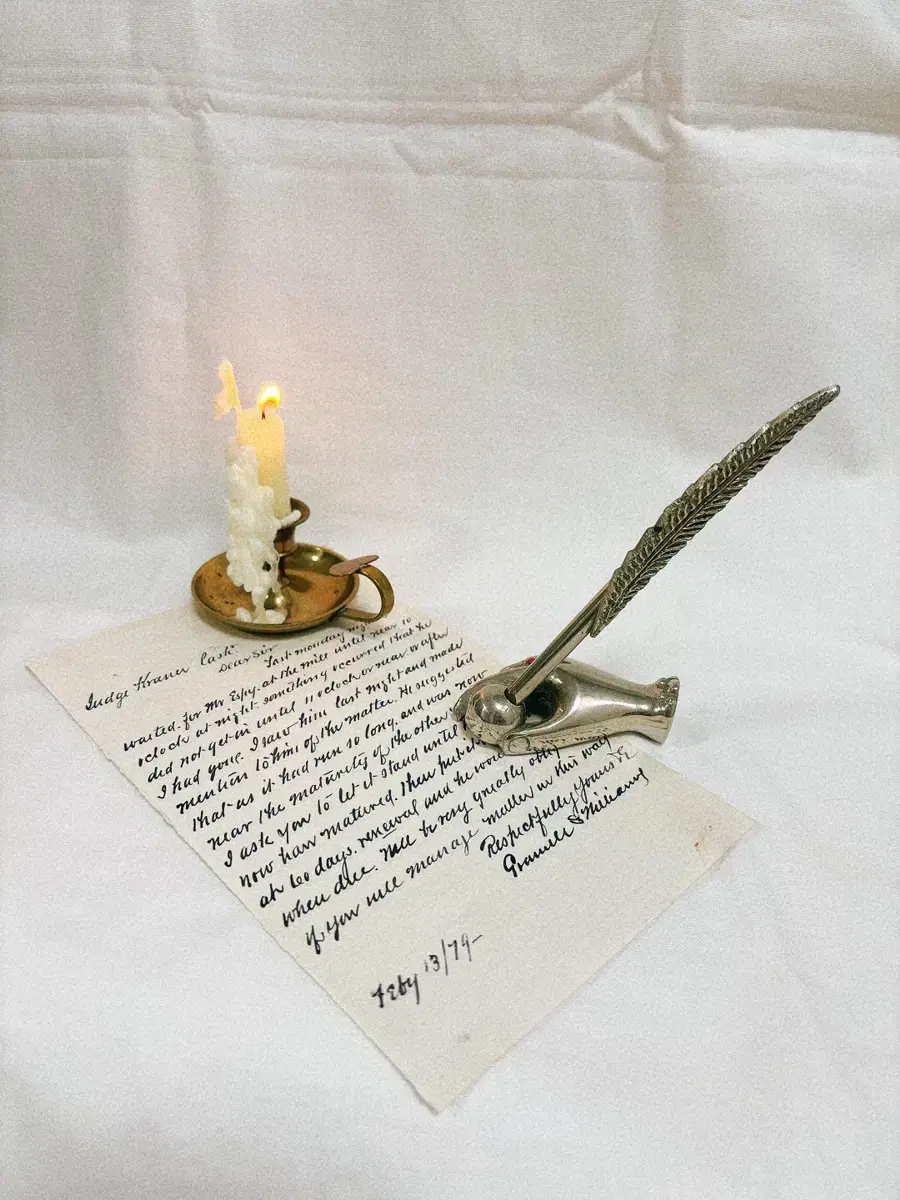 Judge Kraner Cash
Dear Sir
Last monday night
waited for Mr Espy. at the mill until near 10
oclock at night. something occurred that he
did not get in until 11 oclock or near or after
I had gone. I saw him last night and made
mention to him of the matter. He suggested
that as it had run so long. and was now
near the maturity of the other
I ask you to let it stand until
now have matured. Then put
at 60 days. renewal and he
when due. will be very greatly
if you will manage matter in this way
Respectfully Yours &
Williams
Feby 13/79-